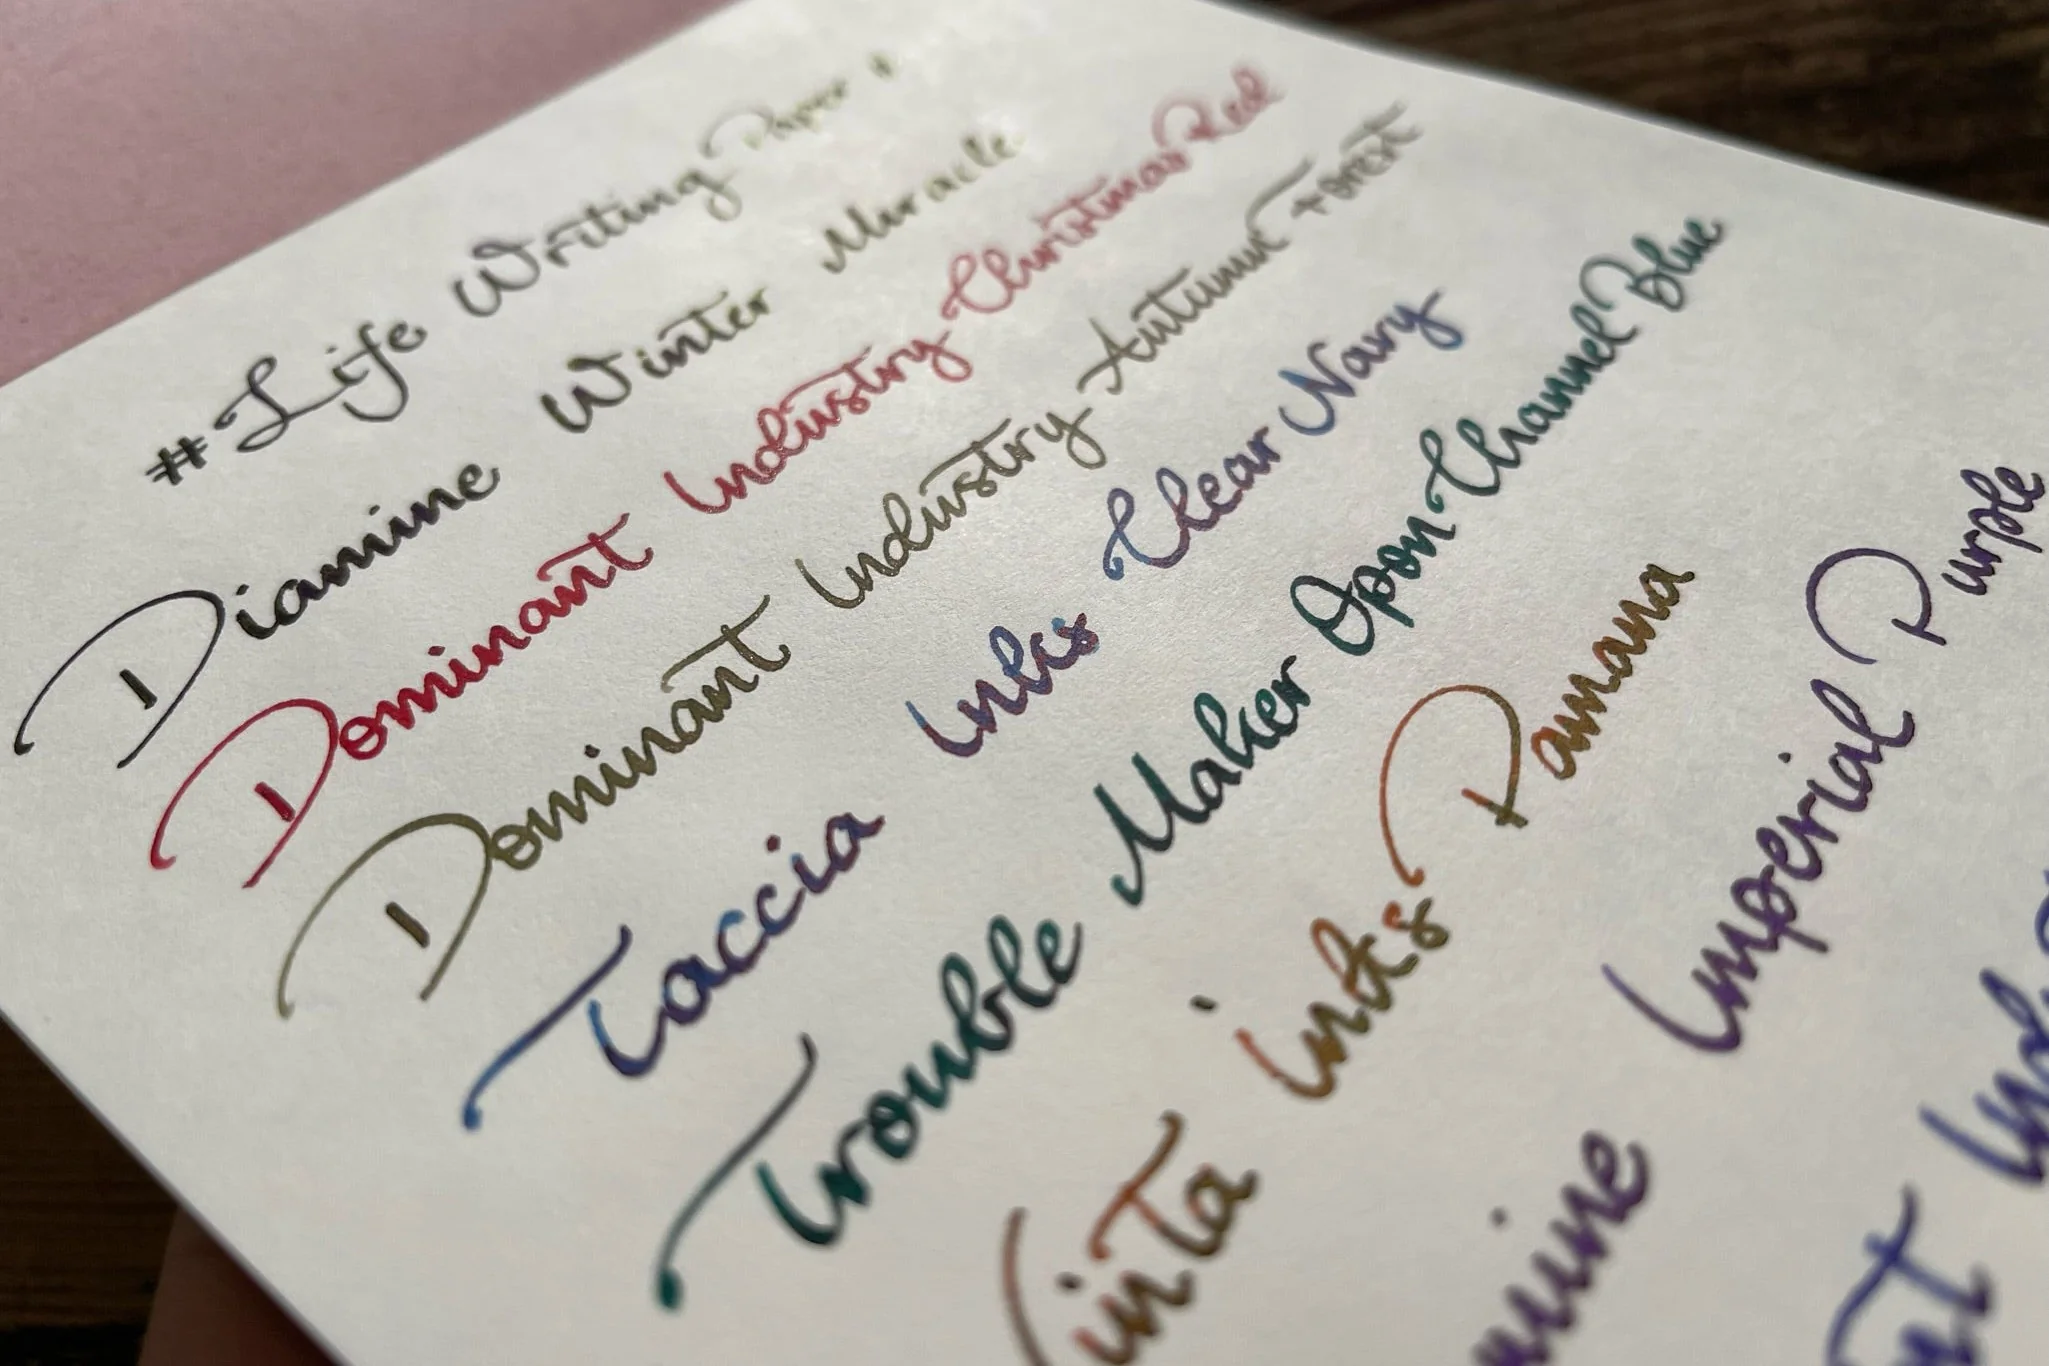 # Life Writing Paper #
Diamine Winter Miracle
Dominant Industry Christmas Red
Dominant Industry Autumn Forest
Taccia Inks Clear Navy
Trouble Maker Opon Channel Blue
inta inks Pamana
mine Imperial Purple